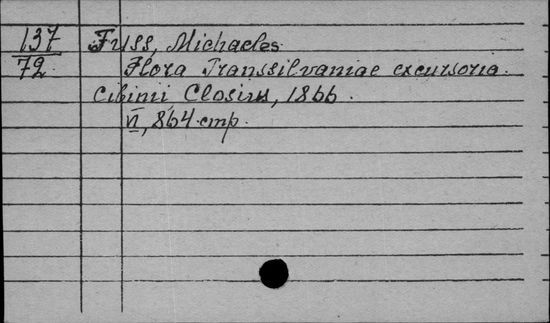 137 Fuss, Michaeles
72. Flora Transsilvaniae excursoria.
Cibinii, Closius, 1866.
VI, 864 cmp.